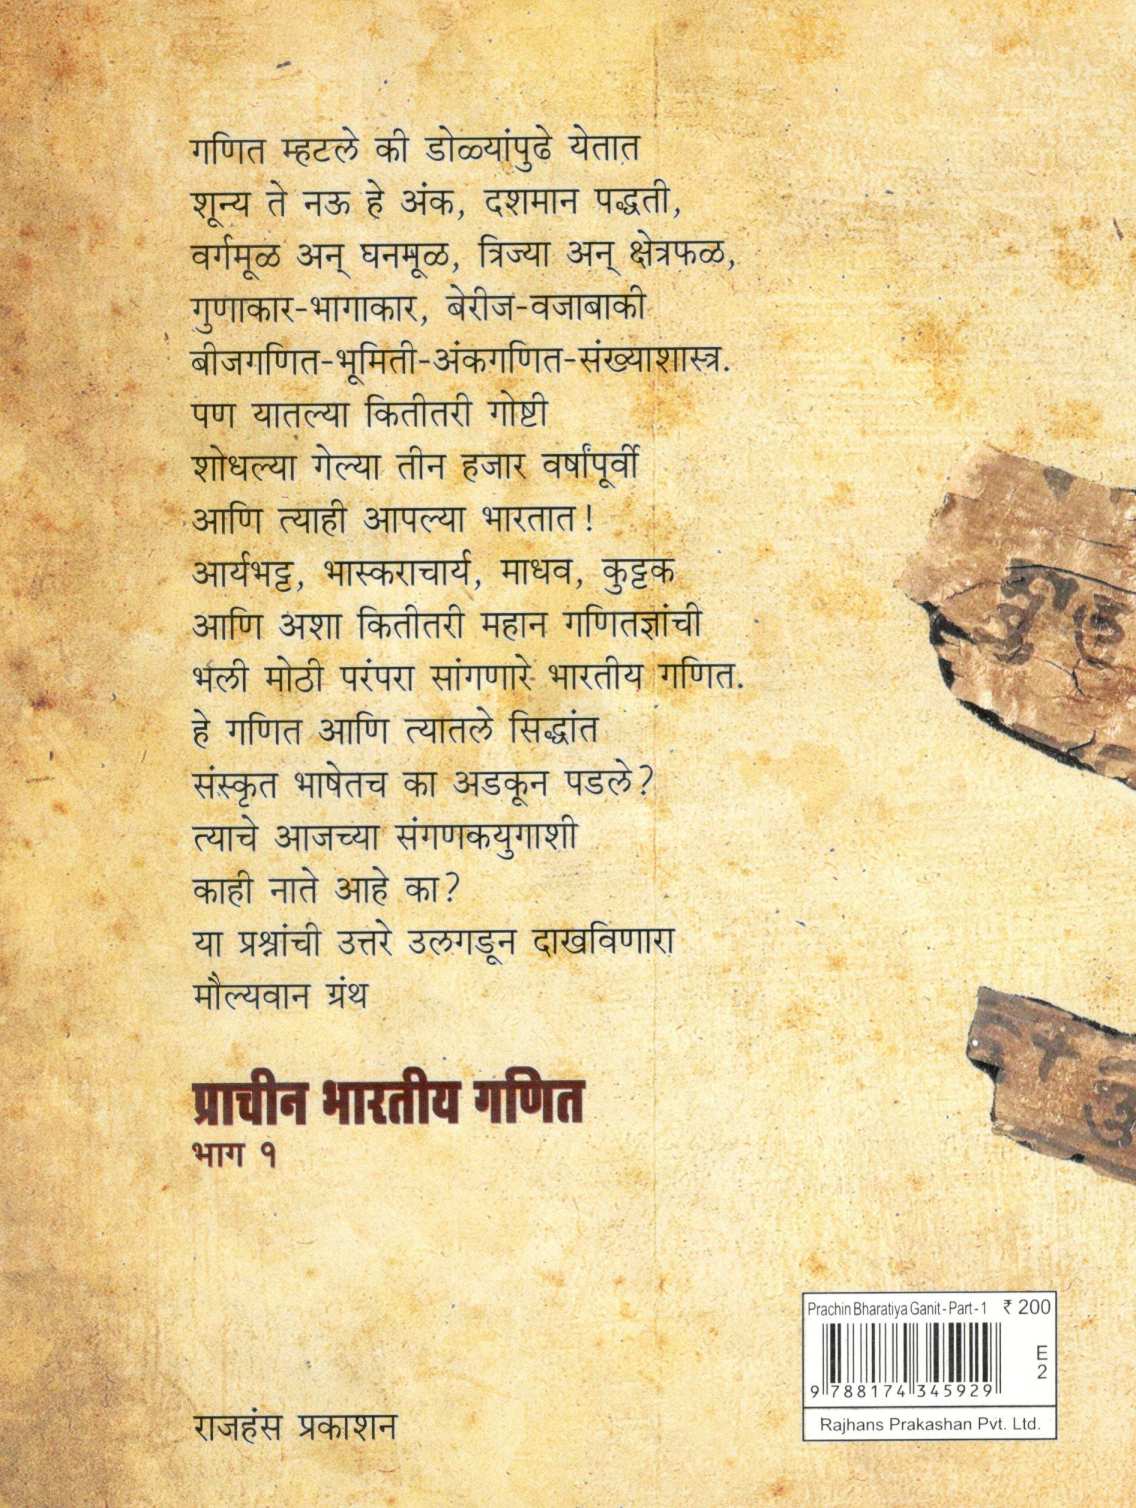 गणित म्हटले की डोळ्यांपुढे येतात
शून्य ते नऊ हे अंक, दशमान पद्धती,
वर्गमूळ अन् घनमूळ, त्रिज्या अन् क्षेत्रफळ,
गुणाकार-भागाकार, बेरीज-वजाबाकी
बीजगणित-भूमिती-अंकगणित-संख्याशास्त्र.
पण यातल्या कितीतरी गोष्टी
शोधल्या गेल्या तीन हजार वर्षांपूर्वी
आणि त्याही आपल्या भारतात!
आर्यभट्ट, भास्कराचार्य, माधव, कुट्टक
आणि अशा कितीतरी महान गणितज्ञांची
भली मोठी परंपरा सांगणारे भारतीय गणित.
हे गणित आणि त्यातले सिद्धांत
संस्कृत भाषेतच का अडकून पडले?
त्याचे आजच्या संगणकयुगाशी
काही नाते आहे का?
या प्रश्नांची उत्तरे उलगडून दाखविणारा
मौल्यवान ग्रंथ
प्राचीन भारतीय गणित
भाग १
राजहंस प्रकाशन
Prachin Bharatiya Ganit - Part - 1 ₹ 200
E
2
9 788174 345929
Rajhans Prakashan Pvt. Ltd.